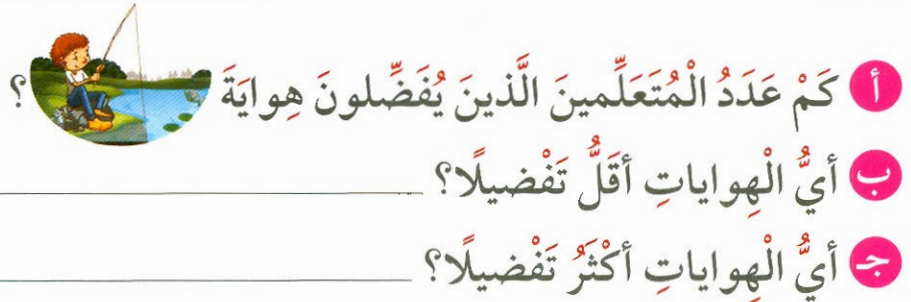 أ كَمْ عَدَدُ الْمُتَعَلِّمينَ الَّذينَ يُفَضِّلونَ هِوايَةَ ؟
ب أيُّ الْهِواياتِ أقَلُّ تَفْضيلًا؟
جـ أيُّ الْهِواياتِ أكْثَرُ تَفْضيلًا؟